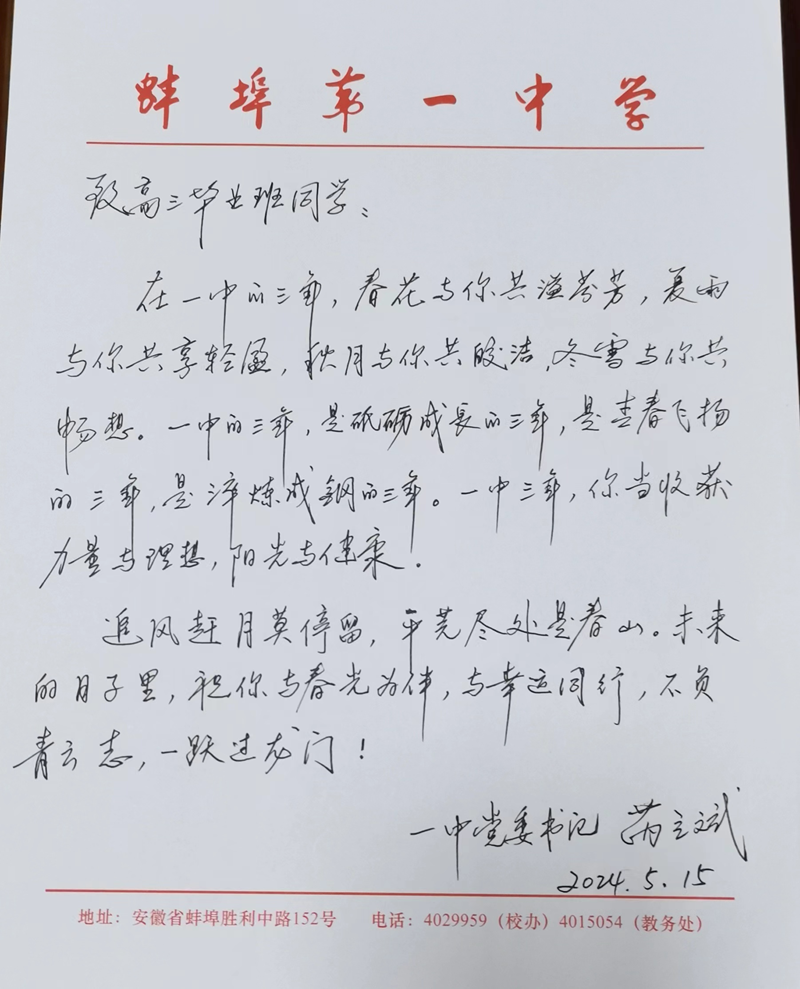 蚌埠第一中学
致高三毕业班同学：
在一中的三年，春花与你共溢芬芳，夏雨
与你共享轻盈，秋月与你共皎洁，冬雪与你共
畅想。一中的三年，是砥砺成长的三年，是青春飞扬
的三年，是淬炼成钢的三年。一中三年，你当收获
力量与理想，阳光与健康。
追风赶月莫停留，平芜尽处是春山。未来
的日子里，祝你与春光为伴，与幸运同行，不负
青云志，一跃过龙门！
一中党委书记
2024.5.15
地址：安徽省蚌埠胜利中路152号 电话：4029959（校办）4015054（教务处）